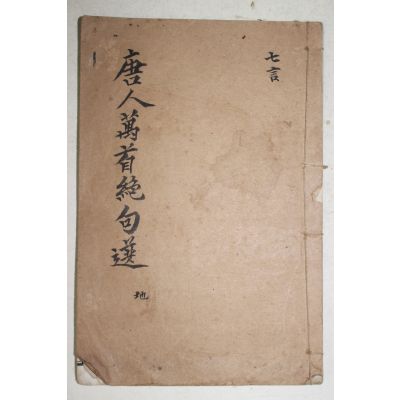 七言
唐人萬首絶句選
地